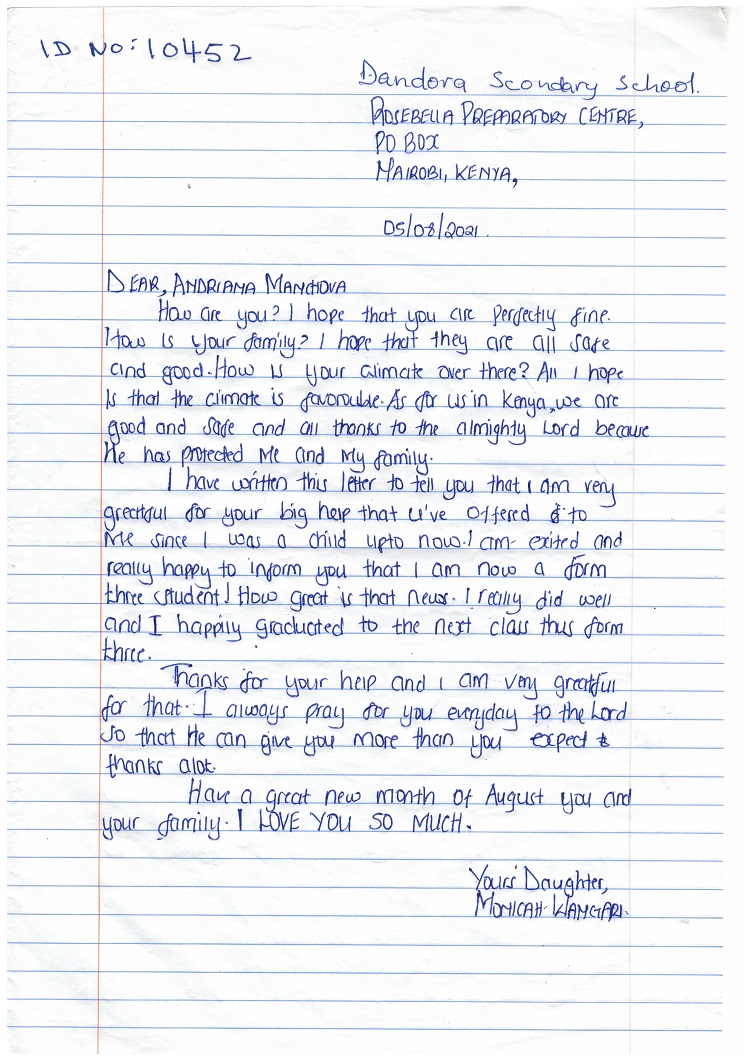 ID NO: 10452
Dandora Scondary School.
ROSEBELLA PREPARATORY CENTRE,
PO BOX
NAIROBI, KENYA,
05/08/2021.
DEAR, ANDRIANA MANCHOVA
How are you? I hope that you are perfectly fine.
How is your family? I hope that they are all safe
and good. How is your climate over there? All I hope
is that the climate is favorouble. As for us in Kenya, we are
good and safe and all thanks to the almighty Lord because
He has protected Me and My family.
I have written this letter to tell you that I am very
greatful for your big help that u've offered to
Me since I was a child upto now. I am exited and
really happy to inform you that I am now a form
three student! How great is that news. I really did well
and I happily graduated to the next class thus form
three.
Thanks for your help and I am very greatful
for that. I always pray for you everyday to the Lord
so that He can give you more than you expect &
thanks alot.
Have a great new month of August you and
your family. I LOVE YOU SO MUCH.
Yours' Daughter,
MONICAH WANGARI.